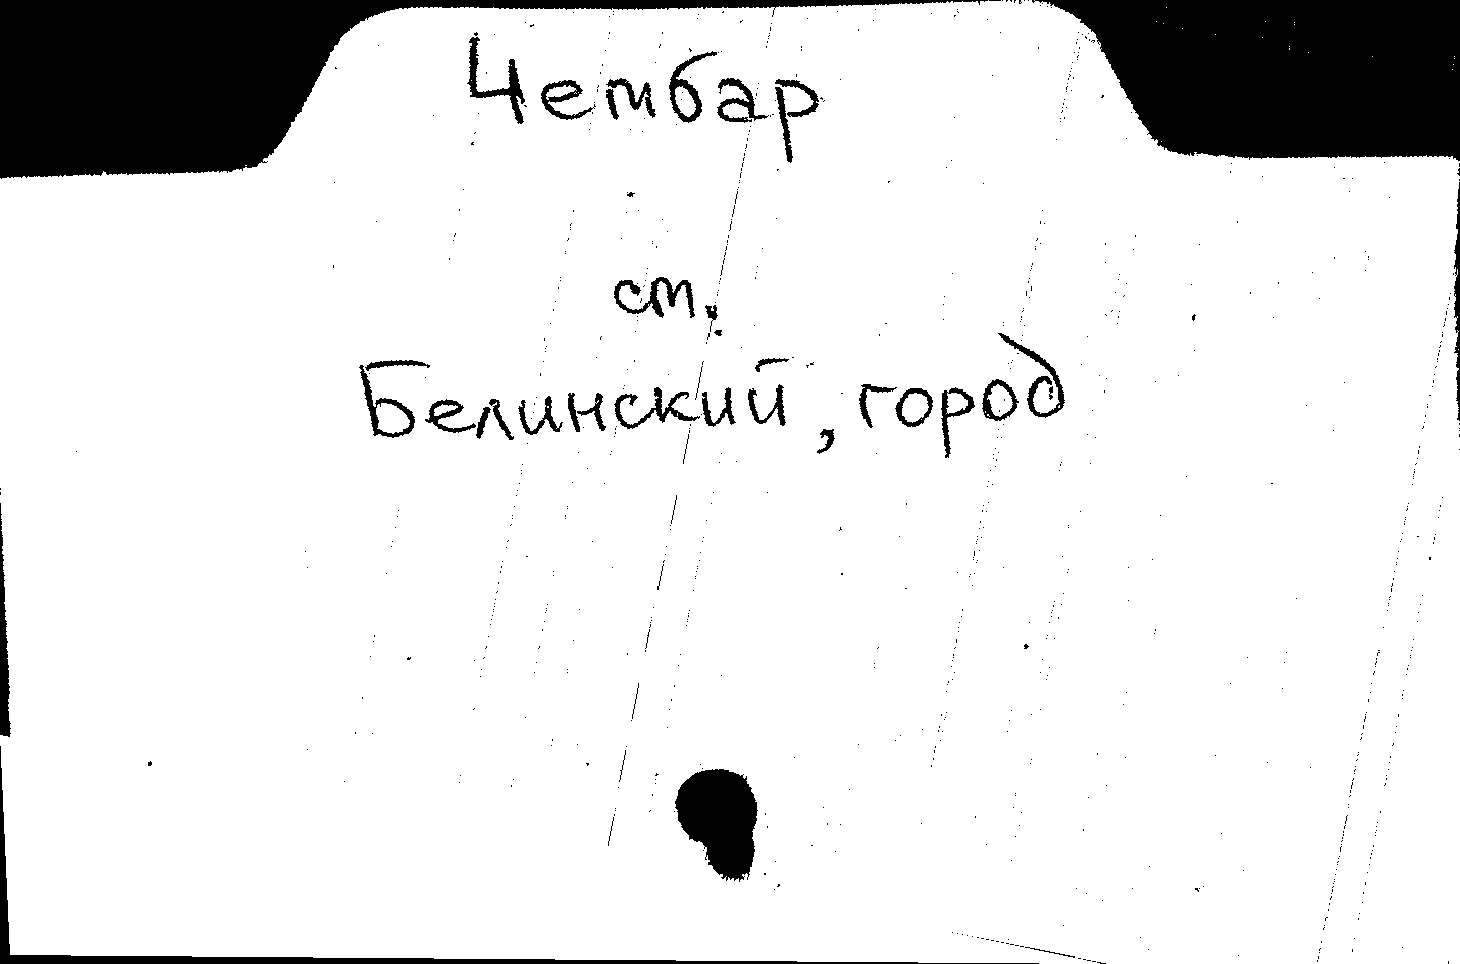 Чембар
ст.
Белинский, город